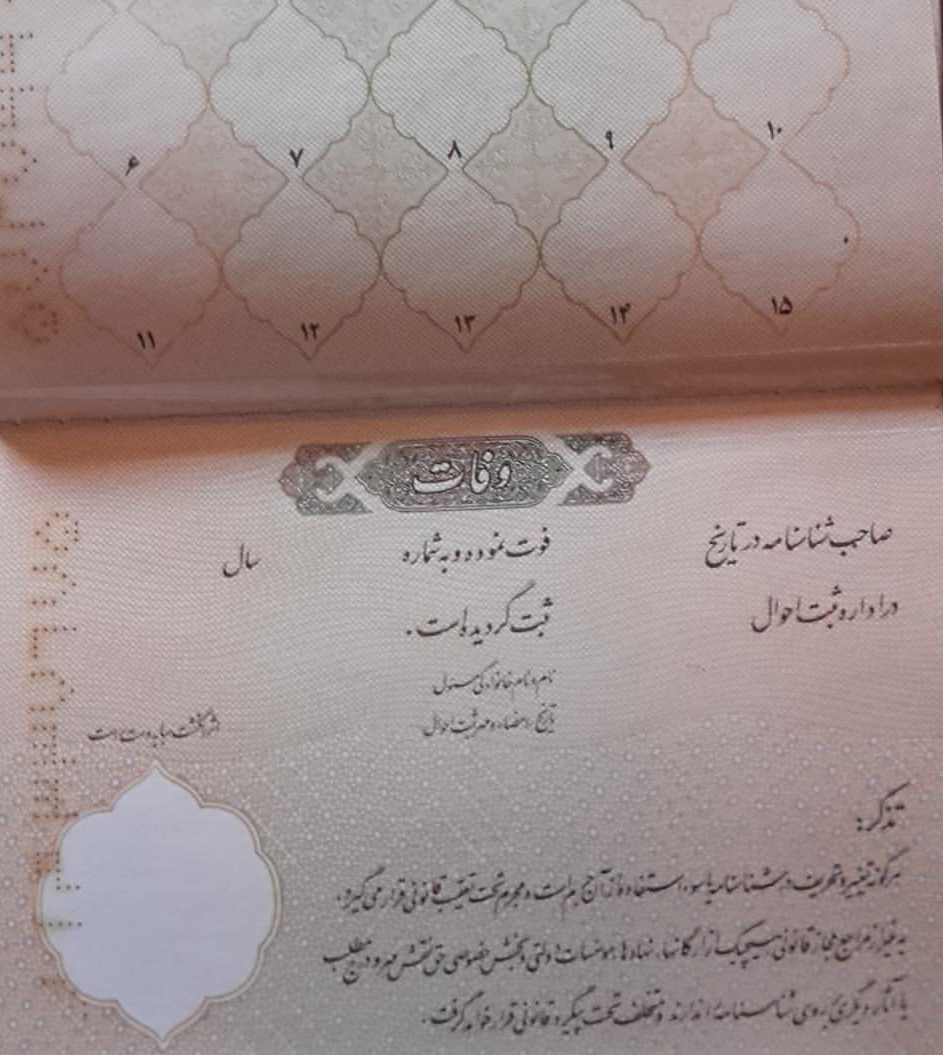 ۶ ۷ ۸ ۹ ۱۰
۱۱ ۱۲ ۱۳ ۱۴ ۱۵
وفات
صاحب شناسنامه در تاریخ فوت نموده و به شماره سال
در اداره ثبت احوال ثبت گردیده است.
نام و نام خانوادگی مسئول
تاریخ، امضاء و مهر ثبت احوال
اثر انگشت سبابه دست است
تذکر:
هرگونه تغییر و تحریف در شناسنامه یا سوء استفاده از آن جرم است و مجرم تحت تعقیب قانونی قرار می‌گیرد.
به غیر از مراجع مجاز قانونی هیچیک از ارگانها، نهادها، موسسات دولتی و بخش خصوصی حق نقش مهر و درج مطلب
یا آثار دیگری بر روی شناسنامه را ندارند و متخلف تحت پیگرد قانونی قرار خواهد گرفت.